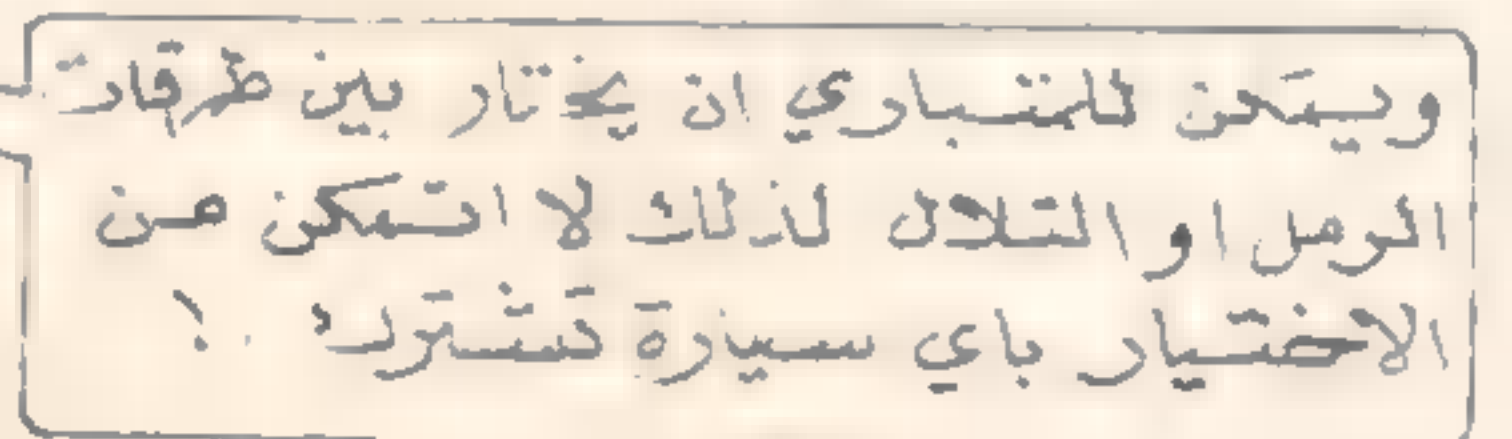 ويتكن للمتباري ان يختار بين طرقات
الرمل او التلال لذلك لا اتمكن من
الاختيار باي سيارة تشترك !